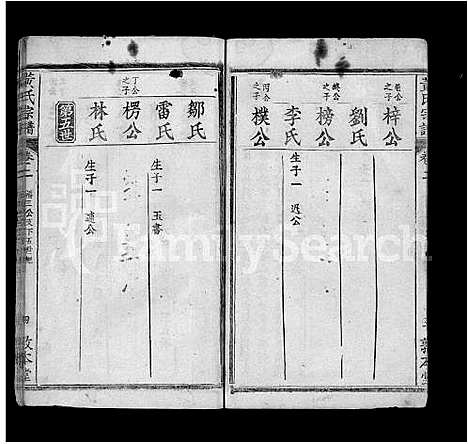 黃氏宗譜
卷二
梓公
劉氏
之子
榜公
李氏
生子一 遲公
丙公之子
樸公
鄒氏
雷氏
生子一 玉書
丁公之子
楞公
林氏
生子一 遠公
第五世
黃氏宗譜
卷二
四
敦本堂
FamilySearch